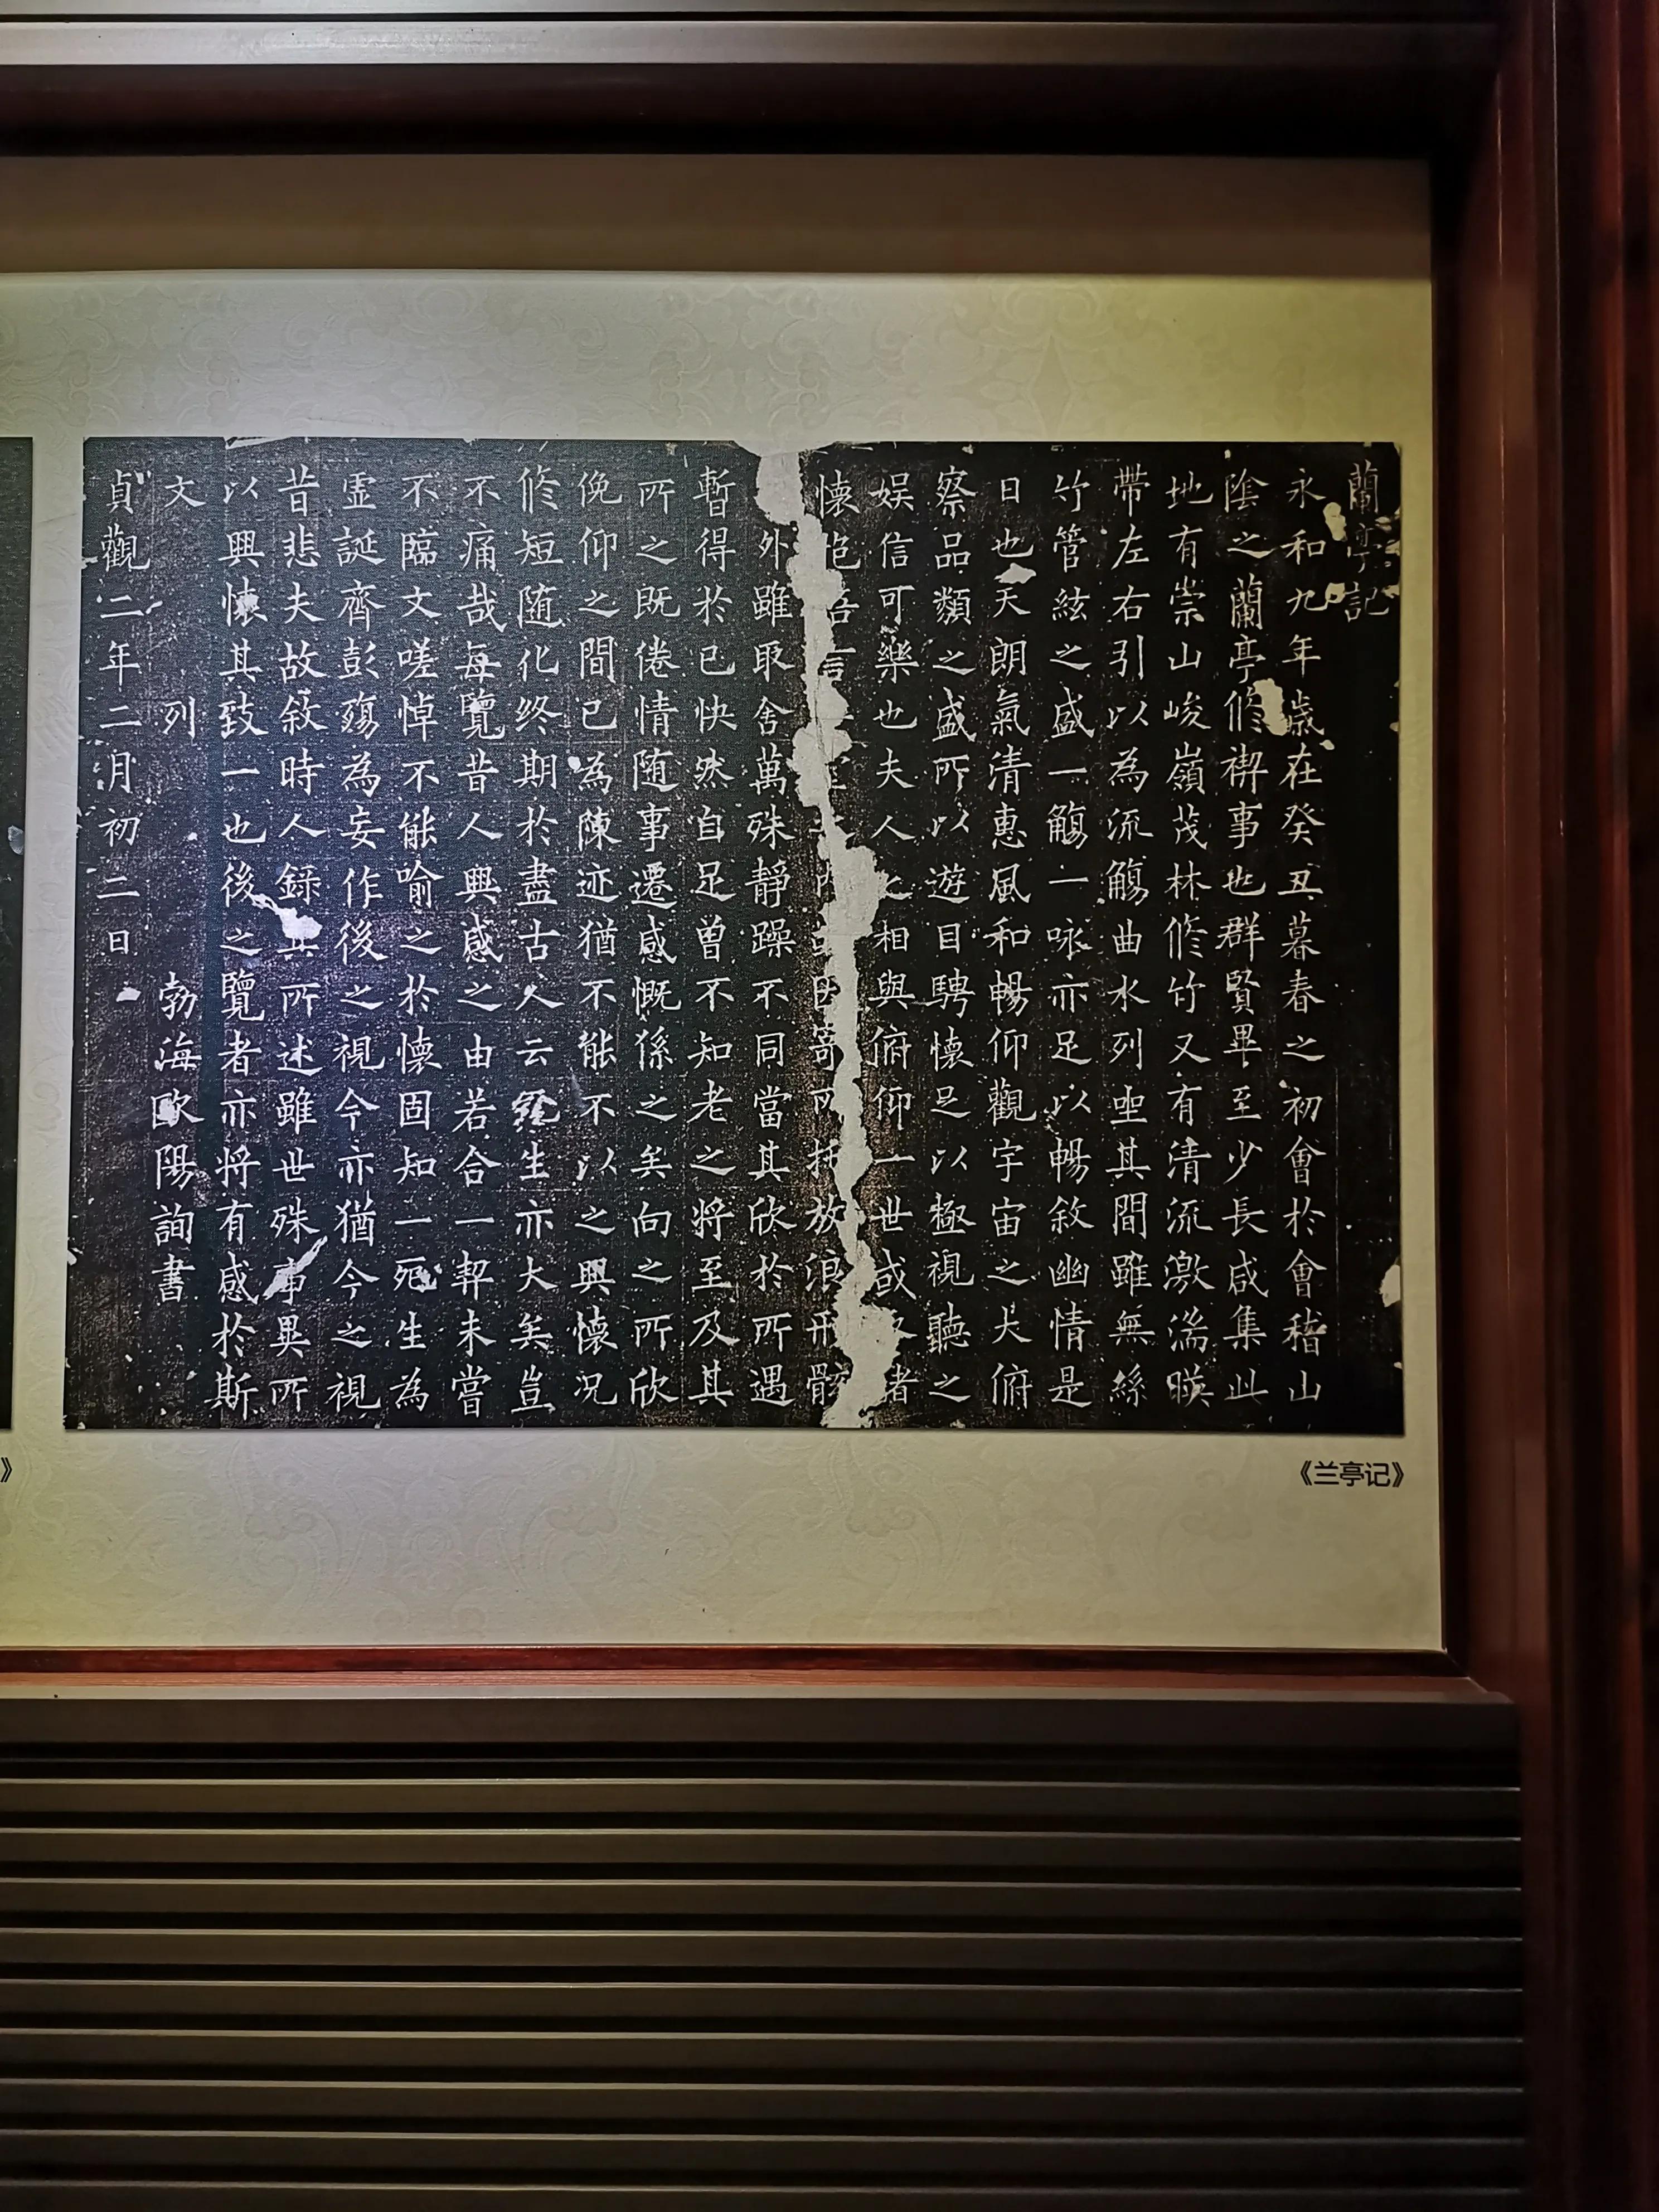 蘭亭記
永和九年歲在癸丑暮春之初會於會稽山
陰之蘭亭修禊事也群賢畢至少長咸集此
地有崇山峻嶺茂林修竹又有清流激湍暎
帶左右引以為流觴曲水列坐其間雖無絲
竹管絃之盛一觴一咏亦足以暢敘幽情是
日也天朗氣清惠風和暢仰觀宇宙之大俯
察品類之盛所以遊目騁懷足以極視聽之
娱信可樂也夫人之相與俯仰一世或
懷言因寄所托放浪形骸
外雖取舍萬殊靜躁不同當其欣於所遇
暫得於己快然自足曾不知老之將至及其
所之既倦情随事遷感慨係之矣向之所欣
俛仰之間已為陳迹猶不能不以之興懷況
修短随化終期於盡古人云死生亦大矣豈
不痛哉每覽昔人興感之由若合一契未嘗
不臨文嗟悼不能喻之於懷固知一死生為
虛誕齊彭殤為妄作後之視今亦猶今之視
昔悲夫故敘時人錄其所述雖世殊事異所
以興懷其致一也後之覽者亦将有感於斯
文 列 勃海歐陽詢書
貞觀二年二月初二日
《兰亭记》
》